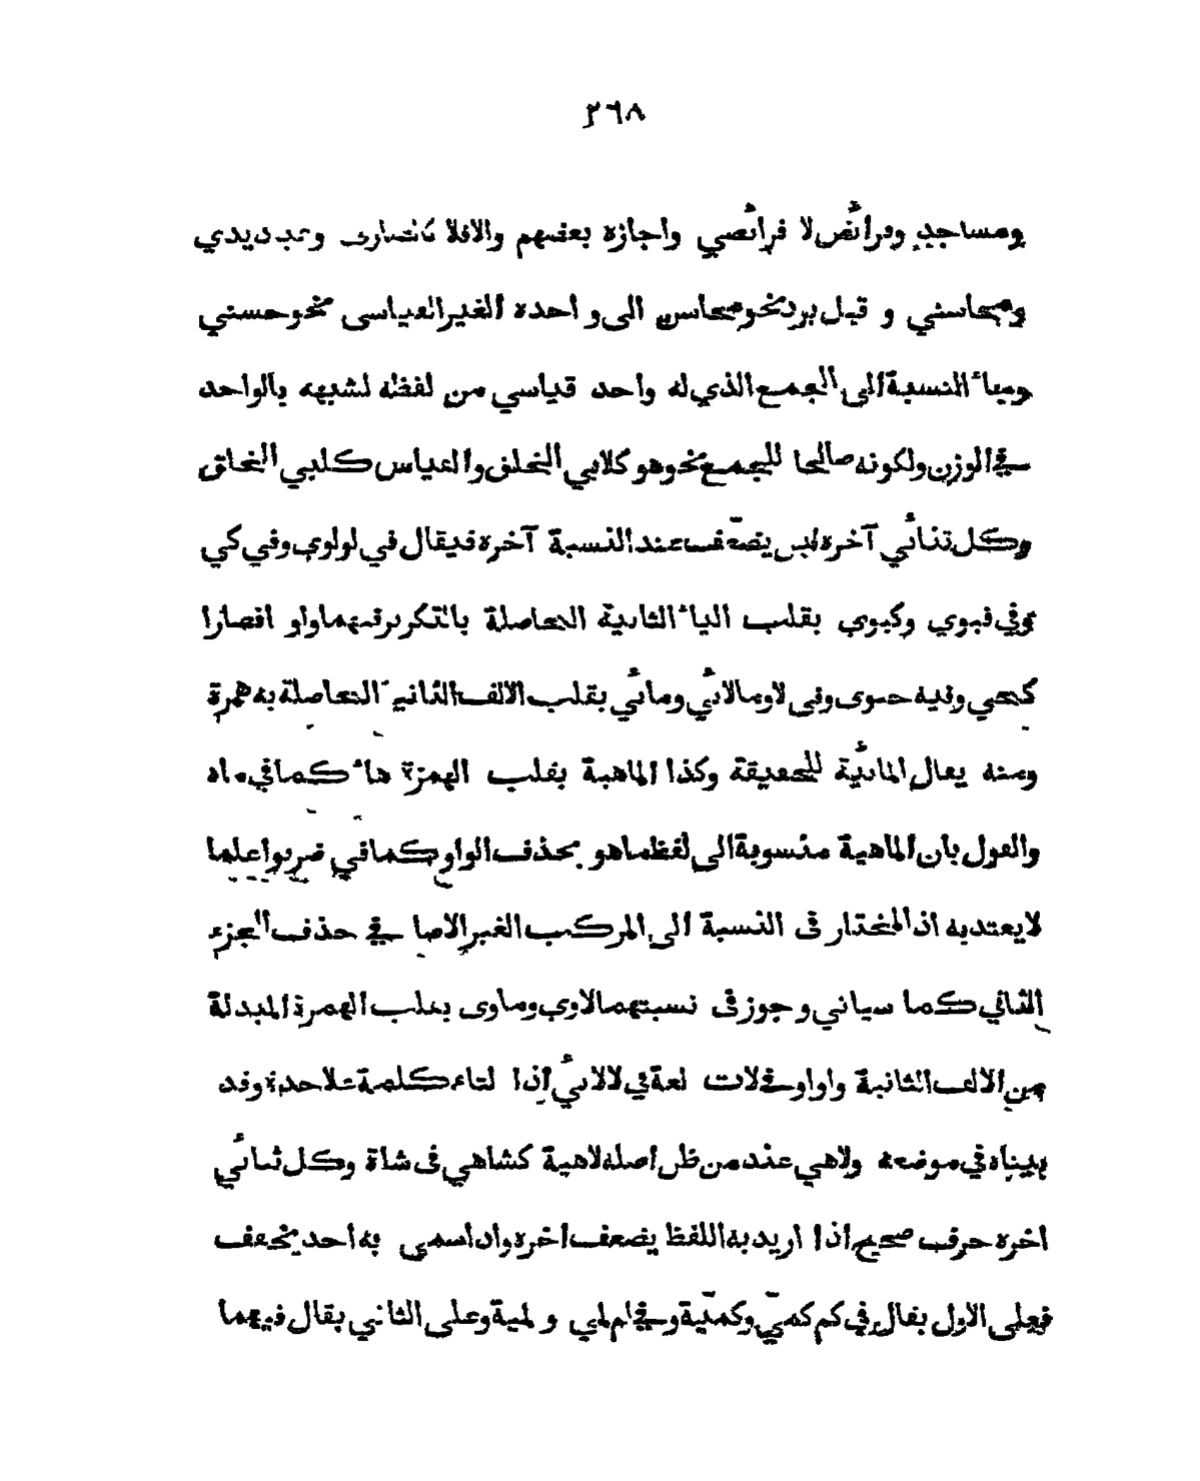 ٢٦٨
ومساجد وفرائض لا فرائضي واجازه بعضهم والا فلا كانصاري وعبـديدي
ومحاسني و قبل برد نحو محاسن الى واحده الغير القياسى نحو حسني
وجاء النسبة الى الجمع الذي له واحد قياسي من لفظه لشبهه بالواحد
في الوزن ولكونه صالحا للجمع نحو هو كلابي الخلق والقياس كلبي الخلق
وكل ثنائي آخره لين يضعّف عند النسبة آخره فيقال في لو لوي وفي كي
وفي فيوي وكيوي بقلب الياء الثانية الحاصلة بالتكرير فيهما واو افصارا
كحي وفيه حيوى وفي لا وما لائي ومائي بقلب الالف الثانية الحاصلة به همزة
ومنه يقال المائية للحقيقة وكذا الماهية بقلب الهمزة هاء كما في ماه
والقول بان الماهية منسوبة الى لفظ ما هو بحذف الواو كما في ضربوا علما
لا يعتد به اذ المختار في النسبة الى المركب الغير الاضافي حذف الجزء
الثاني كما سياتي وجوز في نسبتهما لاوي وماوى بقلب الهمزة المبدلة
من الالف الثانية واوا وفي لات لغة في لا لائي اذا لتاء كلمة علاحدة وقد
بيناه في موضعه ولاهي عند من ظن اصله لاهية كشاهي في شاة وكل ثنائي
اخره حرف صحيح اذا اريد به اللفظ يضعف اخره وان اسمى به احد يخفف
فعلى الاول يقال في كم كمّي وكمّية وفي لم لمي و لمية وعلى الثاني يقال فيهما